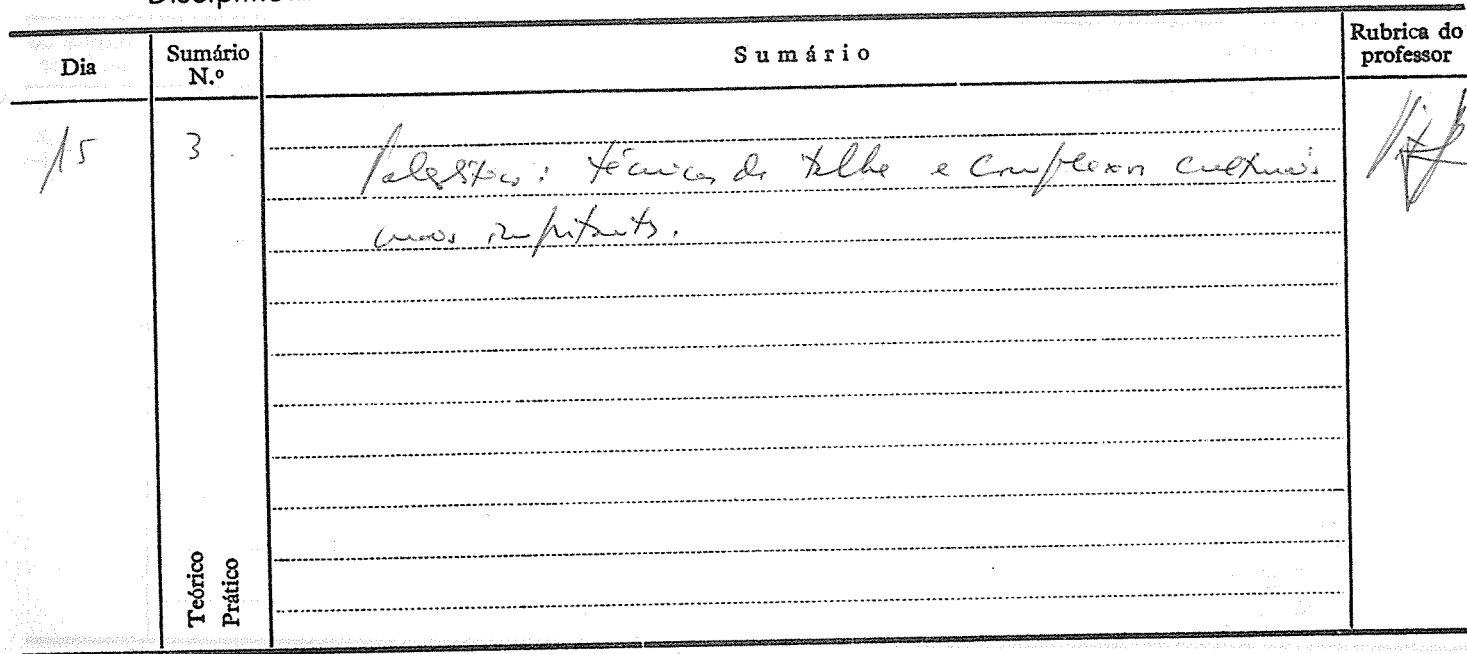 Dia
Sumário N.º
Sumário
Rubrica do professor
15
3
Paleolítico: técnicas de talhe e complexos culturais
mais importantes.
Teórico
Prático